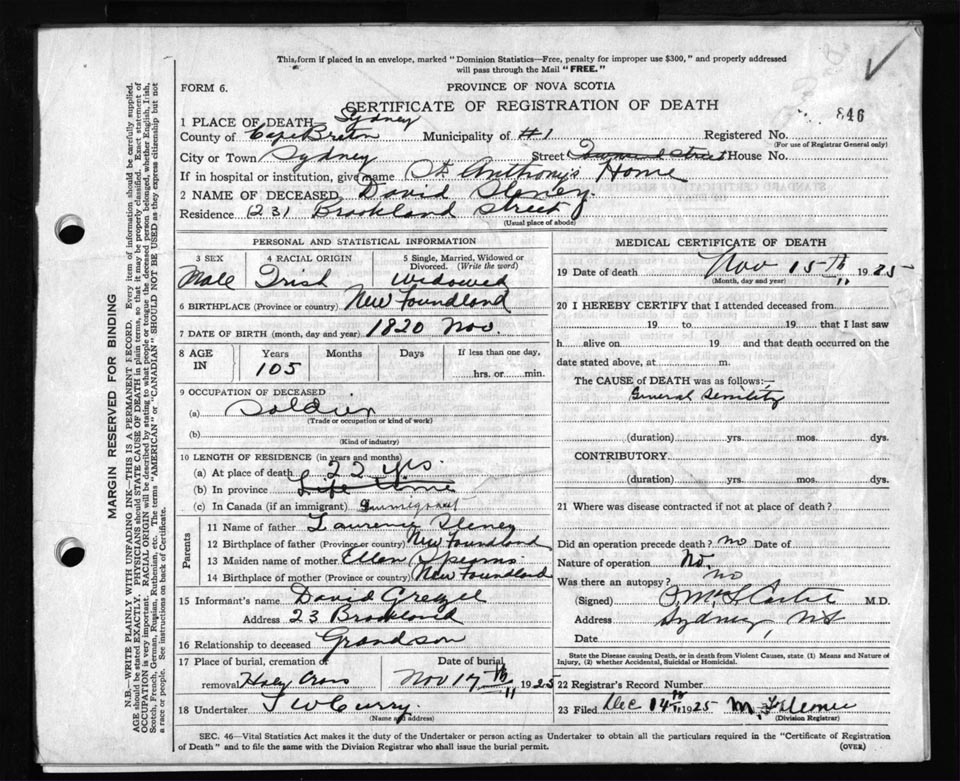 This form if placed in an envelope, marked "Dominion Statistics—Free, penalty for improper use $300," and properly addressed
will pass through the Mail "FREE."
FORM 6.
PROVINCE OF NOVA SCOTIA
CERTIFICATE OF REGISTRATION OF DEATH
846
1 PLACE OF DEATH Sydney
County of Cape Breton Municipality of #1 Registered No.
(For use of Registrar General only)
City or Town Sydney Street Townsend Street House No.
If in hospital or institution, give name St Anthony's Home
2 NAME OF DECEASED David Sleney
Residence 231 Brookland Street
(Usual place of abode)
PERSONAL AND STATISTICAL INFORMATION
3 SEX 4 RACIAL ORIGIN 5 Single, Married, Widowed or Divorced. (Write the word)
Male Irish Widowed
6 BIRTHPLACE (Province or country) New Foundland
7 DATE OF BIRTH (month, day and year) 1820 Nov
8 AGE IN Years Months Days If less than one day,
105 hrs. or min.
9 OCCUPATION OF DECEASED
(a) Soldier
(Trade or occupation or kind of work)
(b)
(Kind of industry)
10 LENGTH OF RESIDENCE (in years and months)
(a) At place of death 22 yrs.
(b) In province Life time
(c) In Canada (if an immigrant) Immigrant
Parents
11 Name of father Laurence Sleney
12 Birthplace of father (Province or country) New Foundland
13 Maiden name of mother Ellen Spearns
14 Birthplace of mother (Province or country) New Foundland
15 Informant's name David
Address 23 Brookland
16 Relationship to deceased Grandson
17 Place of burial, cremation or removal Holy Cross
Date of burial Nov 17th 1925
18 Undertaker T W Curry
(Name and address)
MEDICAL CERTIFICATE OF DEATH
19 Date of death Nov 15th 1925
(Month, day and year)
20 I HEREBY CERTIFY that I attended deceased from
19 to 19 that I last saw
h alive on 19 and that death occurred on the
date stated above, at m.
The CAUSE of DEATH was as follows:—
General Senility
(duration) yrs. mos. dys.
CONTRIBUTORY
(duration) yrs. mos. dys.
21 Where was disease contracted if not at place of death?
Did an operation precede death? no Date of
Nature of operation No.
Was there an autopsy? no
(Signed) M.D.
Address Sydney, NS
Date
State the Disease causing Death, or in death from Violent Causes, state (1) Means and Nature of
Injury, (2) whether Accidental, Suicidal or Homicidal.
22 Registrar's Record Number
23 Filed Dec 14th 1925
(Division Registrar)
SEC. 46—Vital Statistics Act makes it the duty of the Undertaker or person acting as Undertaker to obtain all the particulars required in the "Certificate of Registration
of Death" and to file the same with the Division Registrar who shall issue the burial permit.
(OVER)
MARGIN RESERVED FOR BINDING
N.B.—WRITE PLAINLY WITH UNFADING INK—THIS IS A PERMANENT RECORD. Every item of information should be carefully supplied.
AGE should be stated EXACTLY. PHYSICIANS should STATE CAUSE OF DEATH in plain terms, so that it may be properly classified. Exact statement of
OCCUPATION is very important. RACIAL ORIGIN will be described by stating to what people or tongue the deceased person belonged, whether English, Irish,
Scotch, French, German, Russian, Ruthenian, etc. The terms "AMERICAN" or "CANADIAN" SHOULD NOT BE USED as they express citizenship but not
a race or people. See instructions on back of Certificate.